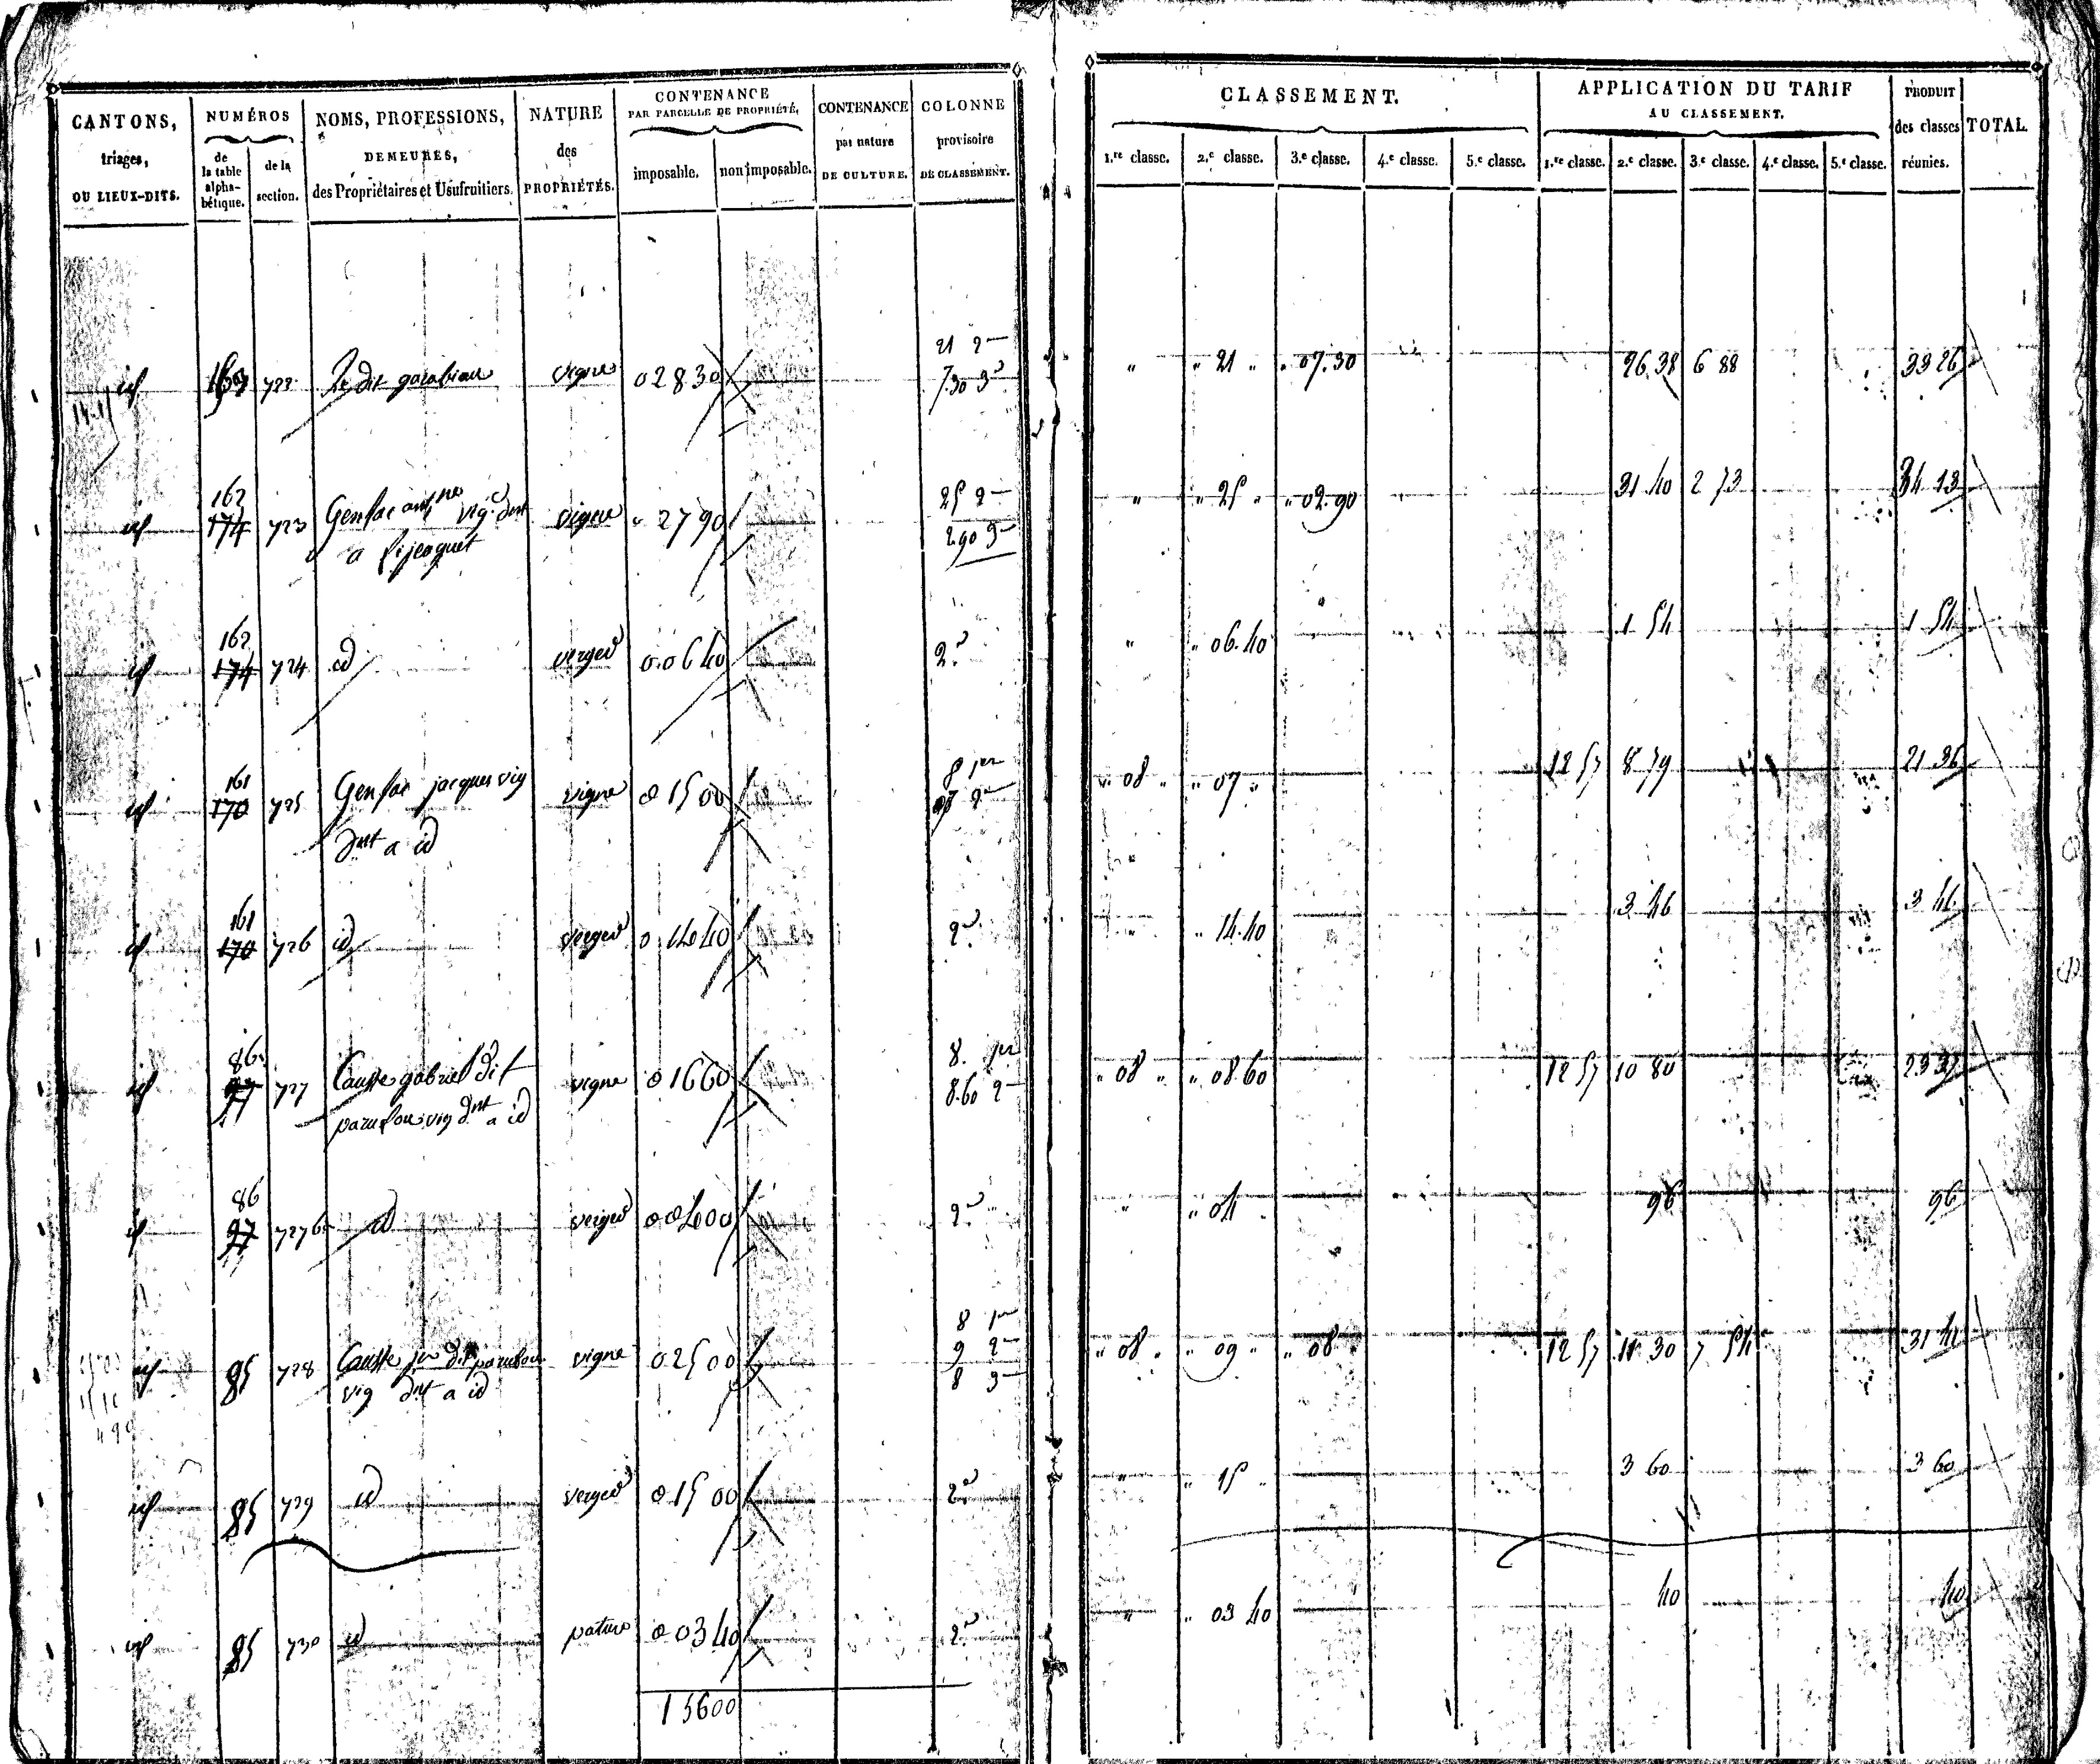 CANTONS, triages, OU LIEUX-DITS.
NUMÉROS
de la table alphabétique.
de la section.
NOMS, PROFESSIONS, DEMEURES, des Propriétaires et Usufruitiers.
NATURE des PROPRIÉTÉS.
CONTENANCE PAR PARCELLE DE PROPRIÉTÉ,
imposable.
non imposable.
CONTENANCE par nature DE CULTURE.
COLONNE provisoire DE CLASSEMENT.
CLASSEMENT.
1.re classe. 2.e classe. 3.e classe. 4.e classe. 5.e classe.
APPLICATION DU TARIF AU CLASSEMENT.
1.re classe. 2.e classe. 3.e classe. 4.e classe. 5.e classe.
PRODUIT des classes réunies.
TOTAL
id 722 vigne 0 28 30 21 2 " " 21 " " 07.30 26.38 6 88 33 26
7 30 3
162
id 174 723 Gensac vig. dnt vigne " 27 90 25 2 " " 25 " " 02.90 31 40 2 73 34 13
a 2 90 3
162
id 174 724 id verger 0 06 40 2e " " 06.40 1 54 1 54
161
id 170 725 Gensac jacques vig vigne 0 15 00 8 1er " 08 " " 07 " 12 57 8 79 21 36
dnt a id 07 2
161
id 170 726 id verger 0 14 40 2e " " 14.40 3 46 3 46
86
id 97 727 Causse gabriel dit vigne 0 16 60 8. 1er " 08 " " 08.60 12 57 10 80 23 37
vig dnt a id 8.60 2
86
id 97 727 bis id verger 0 04 00 2e " " 04 96 96
id 85 728 Causse dit vigne 0 25 00 8 1er " 08 " " 09 " " 08 12 57 11 30 7 54 31 41
vig dnt a id 9 2
8 3
id 85 729 id verger 0 15 00 2e " " 15 " 3 60 3 60
id 85 730 id pature 0 03 40 2e " " 03 40 40 40
1 5600